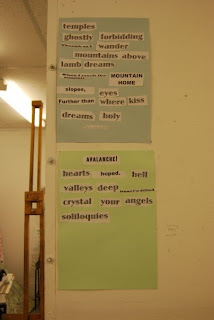 temples
ghostly forbidding
wander
mountains above
lamb dreams
MOUNTAIN HOME
slopes, eyes
Further than where kiss
dreams holy
AVALANCHE!
hearts hoped. hell
valleys deep
crystal your angels
soliloquies